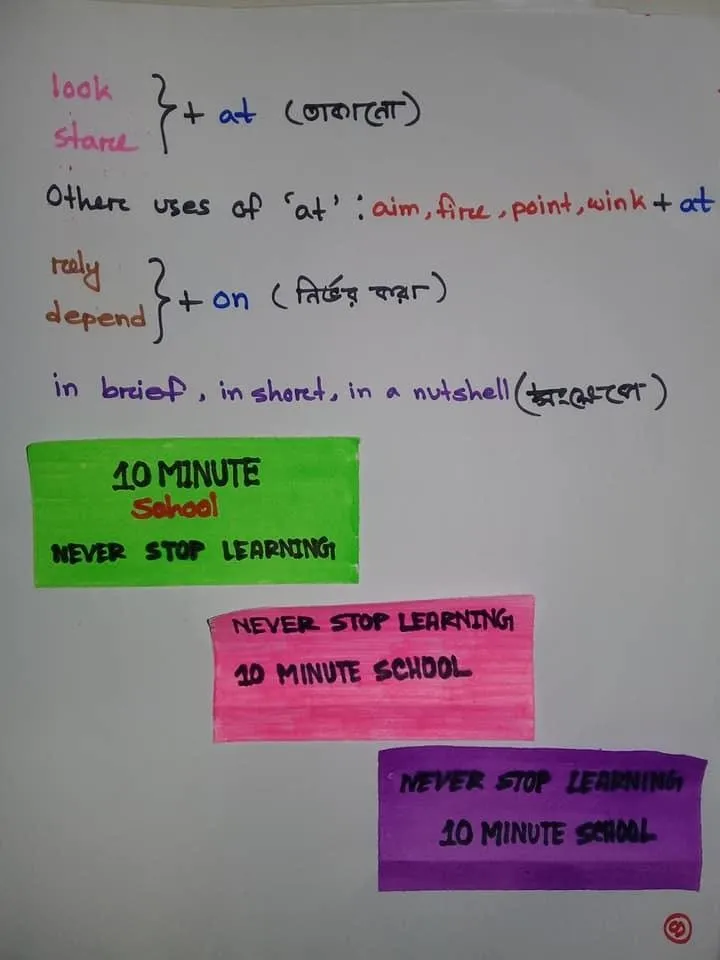 look
stare
} + at (তাকানো)
Other uses of 'at' : aim, fire, point, wink + at
rely
depend
} + on (নির্ভর করা)
in brief, in short, in a nutshell (সংক্ষেপে)
10 MINUTE
School
NEVER STOP LEARNING
NEVER STOP LEARNING
10 MINUTE SCHOOL
NEVER STOP LEARNING
10 MINUTE SCHOOL